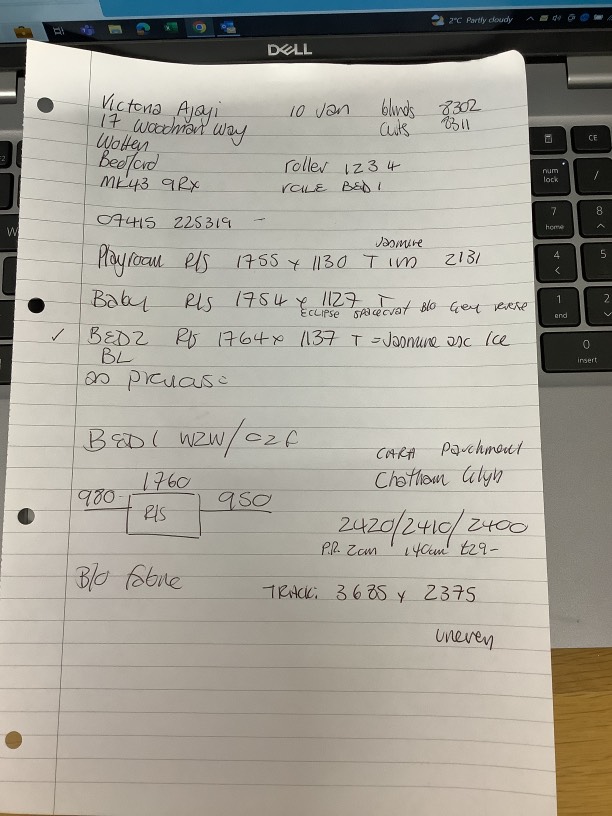 2°C Partly cloudy
DELL
Victoria Ajayi 10 Jan blinds 8302
17 Woodman Way cuts 8311
Wotten
Bedford roller 1 2 3 4
MK43 9RX BED 1
07415 225319 -
Jasmine
Playroom R/S 1755 x 1130 T 1m 2131
Baby R/S 1754 x 1127 T
ECLIPSE SPACECRAFT B/O Grey reverse
✓ BED2 R/S 1764 x 1137 T = Jasmine asc Ice
BL
BED1 W2W/C2F
CARA Parchment
1760 Chatham Glyn
980- R/S 950
2420/2410/2400
P.R. 2cm 140cm £29-
B/O fabric TRACK: 3685 x 2375
uneven
num lock
7 home
8
4
5
1 end
2
0 insert
CE
/